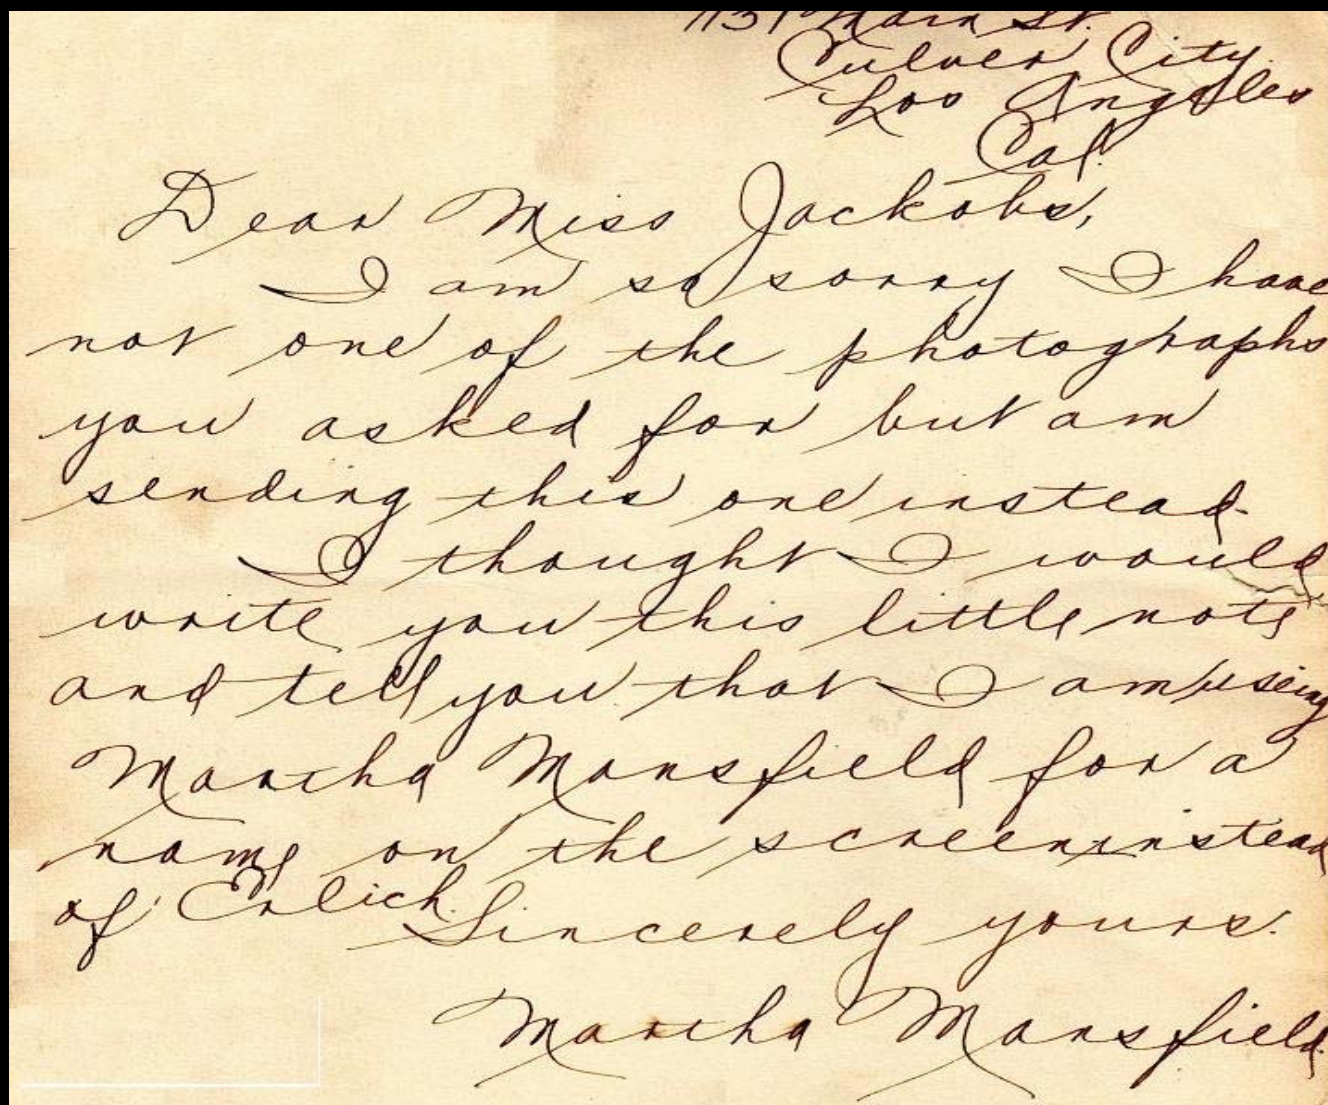 1131 Main St.
Culver City
Los Angeles
Cal.
Dear Miss Jackobs,
I am so sorry I have
not one of the photographs
you asked for but am
sending this one instead.
I thought I would
write you this little note
and tell you that I am useing
Martha Mansfield for a
name on the screen instead
of Erlich.
Sincerely yours.
Martha Mansfield.